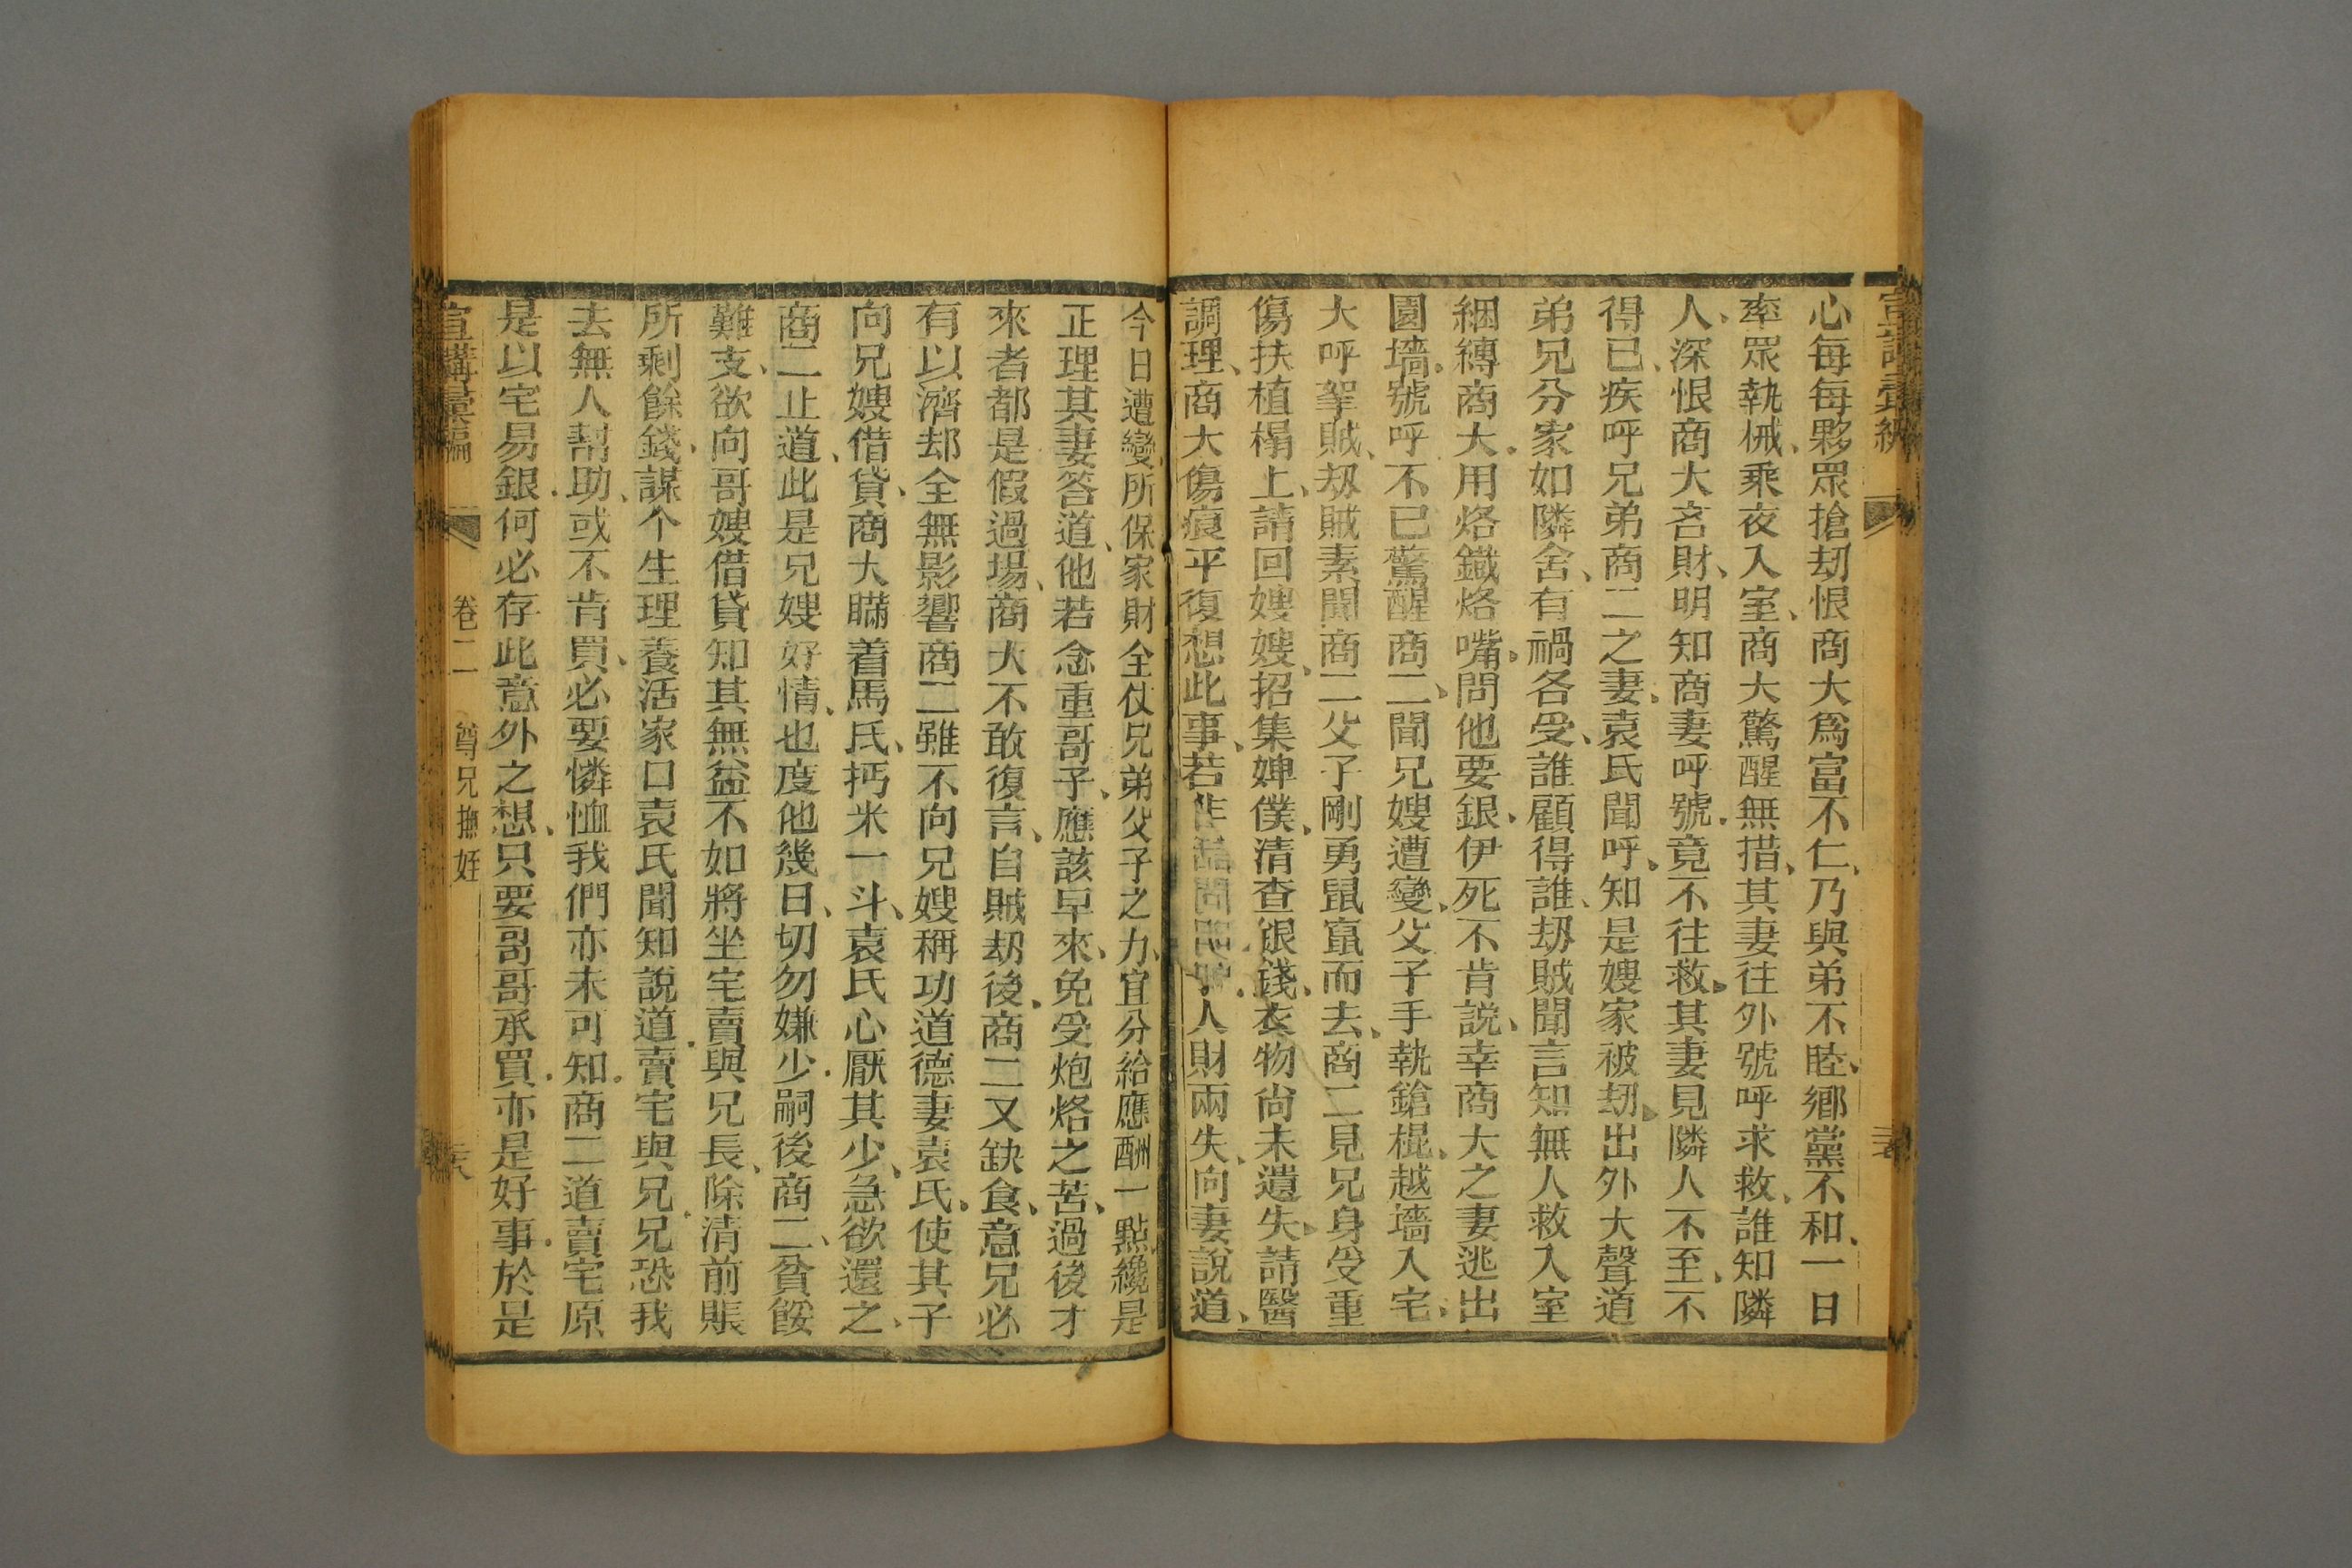 心每每夥眾搶刼恨商大爲富不仁、乃與弟不睦、鄉黨不和、一日
率眾執械、乘夜入室、商大驚醒無措、其妻往外號呼求救、誰知隣
人、深恨商大吝財、明知商妻呼號、竟不往救、其妻見隣人不至、不
得已、疾呼兄弟商二之妻、袁氏聞呼、知是嫂家被刼、出外大聲道
弟兄分家如隣舍、有禍各受、誰顧得誰、刼賊聞言知無人救入室
綑縛商大、用烙鐵烙嘴、問他要銀、伊死不肯說、幸商大之妻逃出
園墻、號呼不已驚醒商二、聞兄嫂遭變、父子手執鎗棍、越墻入宅、
大呼拏賊、刼賊素聞商二父子剛勇鼠竄而去、商二見兄身受重
傷扶植榻上、請回嫂嫂、招集婢僕、清查銀錢、衣物尙未遺失、請醫
調理、商大傷痕平復想此事、若非 人財兩失、向妻說道、
今日遭變、所保家財全仗兄弟父子之力、宜分給應酬一點、纔是
正理其妻答道、他若念重哥子、應該早來、免受炮烙之苦、過後才
來者都是假過場、商大不敢復言、自賊刼後、商二又缺食、意兄必
有以濟却全無影響商二雖不向兄嫂稱功道德妻袁氏、使其子
向兄嫂借貸、商大瞞着馬氏、抅米一斗、袁氏心厭其少、急欲還之、
商二止道、此是兄嫂好情、也度他幾日、切勿嫌少、嗣後商二、貧餒
難支、欲向哥嫂借貸知其無益不如將坐宅賣與兄長、除清前賬
所剩餘錢、謀个生理養活家口袁氏聞知說道、賣宅與兄、兄恐我
去無人幫助、或不肯買、必要憐恤我們亦未可知、商二道賣宅原
是以宅易銀、何必存此意外之想、只要哥哥承買、亦是好事、於是
宣講彙編 卷二 尊兄撫姪